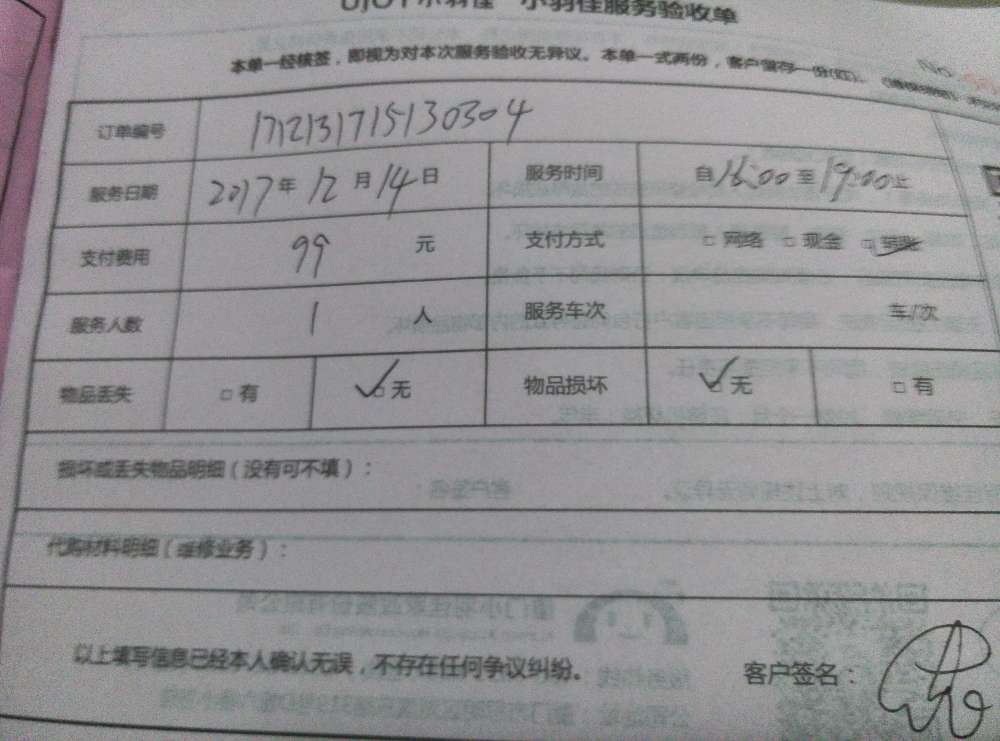 小羽佳服务验收单
本单一经核签，即视为对本次服务验收无异议。本单一式两份，客户留存一份(红)。
订单编号 171213171513 0304
服务日期 2017年12月14日 服务时间 自16:00至19:00止
支付费用 99 元 支付方式 □ 网络 □ 现金 □ 转账
服务人数 1 人 服务车次 车/次
物品丢失 □ 有 ✓□ 无 物品损坏 ✓□ 无 □ 有
损坏或丢失物品明细（没有可不填）：
代购材料明细（维修业务）：
以上填写信息已经本人确认无误，不存在任何争议纠纷。 客户签名：